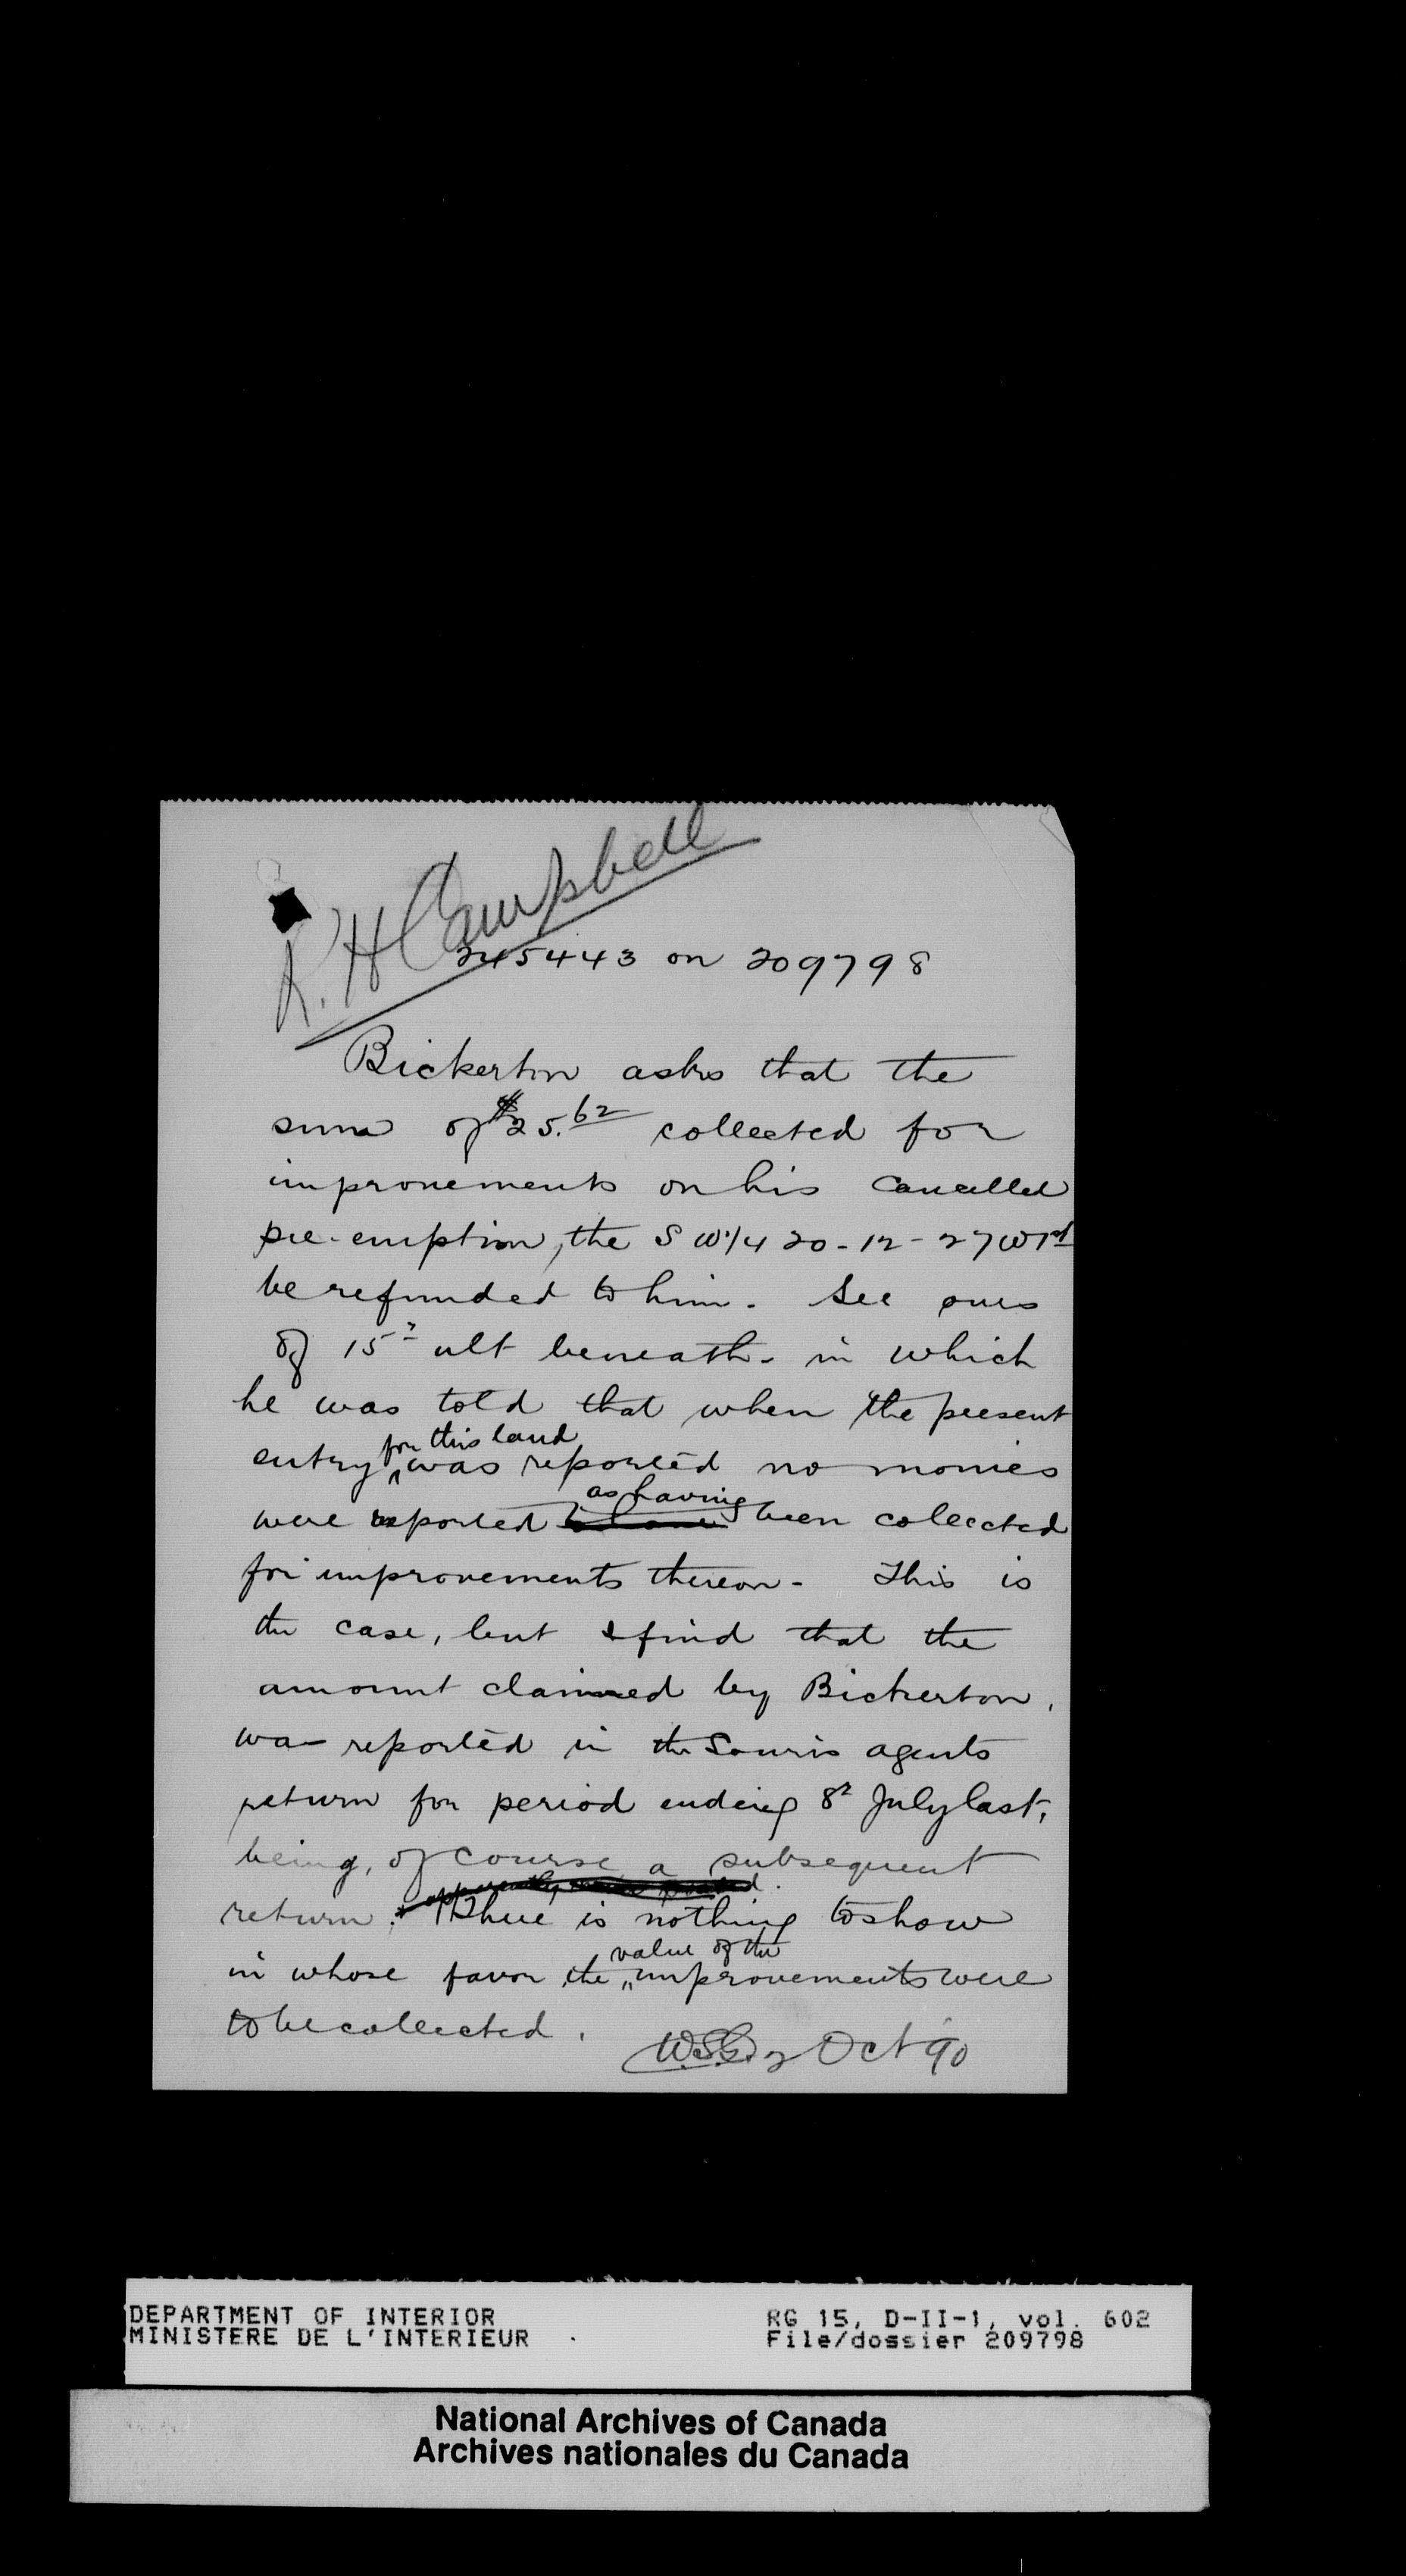 R. H Campbell
245443 on 209798
Bickerton asks that the
sum of $25.62 collected for
improvements on his cancelled
pre-emption, the S W 1/4 20-12-27 W 1st
be refunded to him. See ours
of 15th ult beneath - in which
he was told that when the present
for this land
entry was reported no monies
as having
were reported been collected
for improvements thereon - This is
the case, but I find that the
amount claimed by Bickerton,
was reported in the Souris agents
return for period ending 8th July last,
being, of course a subsequent
return. There is nothing to show
value of the
in whose favor the improvements were
to be collected.
2 Oct 90
DEPARTMENT OF INTERIOR
MINISTERE DE L'INTERIEUR
RG 15, D-II-1, vol. 602
File/dossier 209798
National Archives of Canada
Archives nationales du Canada